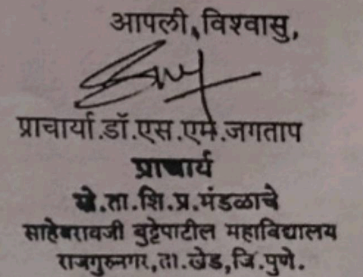 आपली,विश्वासु,
प्राचार्या.डॉ.एस.एम.जगताप
प्राचार्य
खे.ता.शि.प्र.मंडळाचे
साहेबरावजी बुट्टेपाटील महाविद्यालय
राजगुरुनगर,ता.खेड,जि.पुणे.